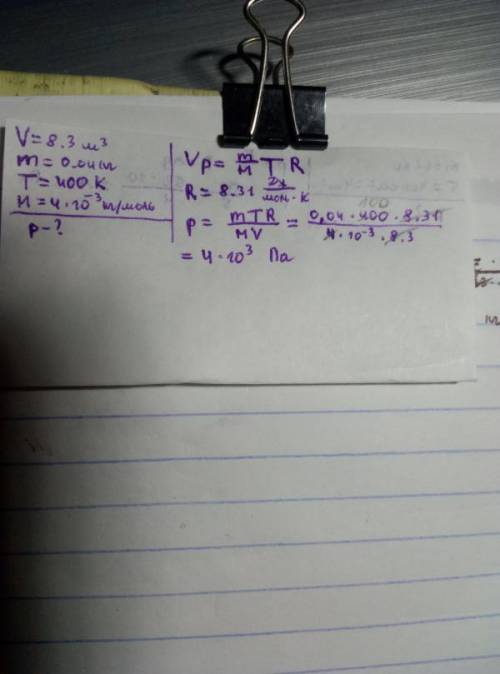 V = 8.3 м³
m = 0.04 кг
T = 400 К
M = 4 · 10⁻³ кг/моль
p - ?
Vp = m/M T R
R = 8.31 Дж/моль · К
p = mTR/MV = 0,04 · 400 · 8.31/4 · 10⁻³ · 8.3
= 4 · 10³ Па